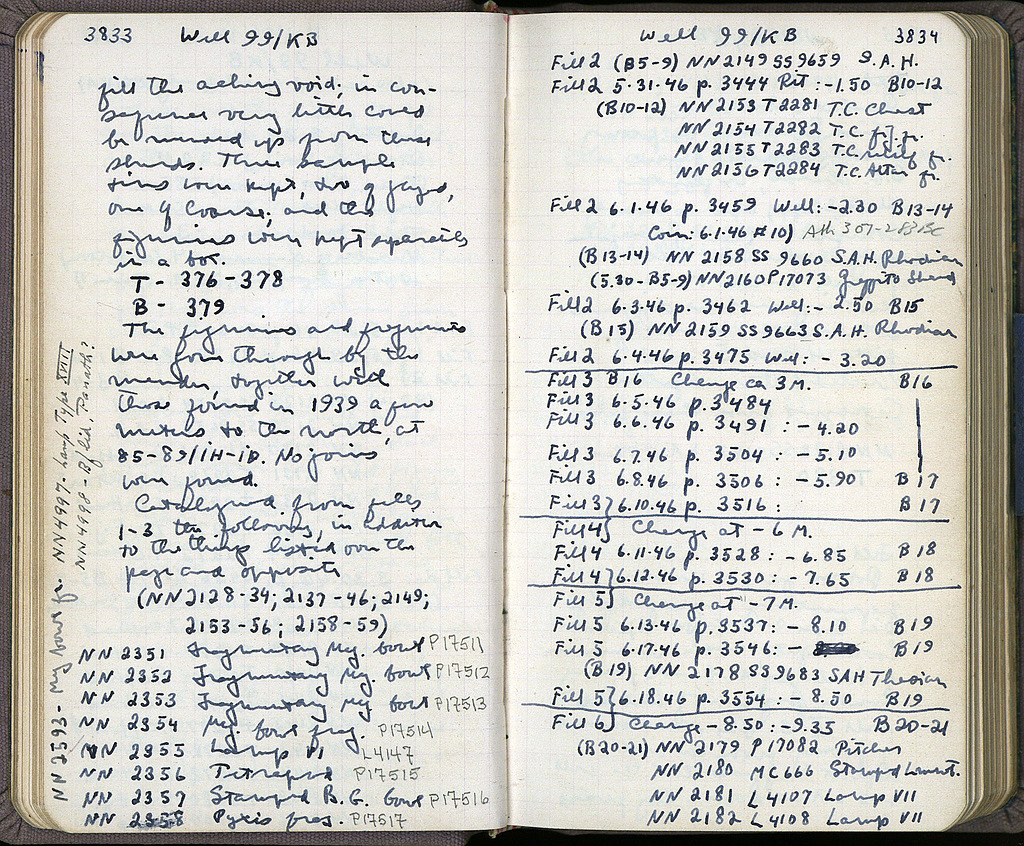 3833 Well 99/KB
fill the aching void; in con-
sequence very little could
be mended up from these
sherds. Three sample
tins were kept, two of glazed,
one of coarse; and the
figurines were kept separately
in a box.
T - 376-378
B - 379
The figurines and fragments
were gone through by the
mender, together with
those found in 1939 a few
meters to the north, at
85-89/IH-ID. No joins
were found.
Catalogued from fills
1-3 the following, in addition
to the things listed over the
page and opposite
(NN 2128-34; 2137-46; 2149;
2153-56; 2158-59)
NN 2351 Fragmentary Meg. bowl P17511
NN 2352 Fragmentary Meg. bowl P17512
NN 2353 Fragmentary Meg bowl P17513
NN 2354 Meg. bowl frag. P17514
NN 2355 Lamp VI L4147
NN 2356 P17515
NN 2357 Stamped B.G. bowl P17516
NN 2358 Pyxis frag. P17517
NN 2593 - Meg bowl fr. NN4997 - Lamp Type XVIII
NN4998 - B/ lid. Panath?
Well 99/KB 3834
Fill 2 (B5-9) NN2149 SS9659 S.A.H.
Fill 2 5.31.46 p. 3444 Pit: -1.50 B10-12
(B10-12) NN 2153 T2281 T.C. Chest
NN 2154 T2282 T.C. fig. fr.
NN 2155 T2283 T.C. relief fr.
NN 2156 T2284 T.C. Altar fr.
Fill 2 6.1.46 p. 3459 Well: -2.20 B13-14
Coin: 6.1.46 #10) Ath 307-283BC
(B13-14) NN 2158 SS 9660 S.A.H. Rhodian
(5.30-B5-9) NN2160 P17073 Graffito Sherd
Fill 2 6.3.46 p. 3462 Well: - 2.50 B15
(B15) NN 2159 SS9663 S.A.H. Rhodian
Fill 2 6.4.46 p. 3475 Well: - 3.20
Fill 3 B16 Change ca 3 M. B16
Fill 3 6.5.46 p. 3484
Fill 3 6.6.46 p. 3491 : - 4.20
Fill 3 6.7.46 p. 3504 : - 5.10
Fill 3 6.8.46 p. 3506 : - 5.90 B17
Fill 3} 6.10.46 p. 3516 : B17
Fill 4} Change at - 6 M.
Fill 4 6.11.46 p. 3528 : - 6.85 B18
Fill 4} 6.12.46 p. 3530 : - 7.65 B18
Fill 5} Change at - 7 M.
Fill 5 6.13.46 p. 3537 : - 8.10 B19
Fill 5 6.17.46 p. 3546 : - B19
(B19) NN 2178 SS9683 SAH Thasian
Fill 5} 6.18.46 p. 3554 : - 8.50 B19
Fill 6} Change - 8.50 : -9.35 B20-21
(B20-21) NN 2179 P 17082 Pitcher
NN 2180 MC666 Stamped Loomwt.
NN 2181 L4107 Lamp VII
NN 2182 L4108 Lamp VII